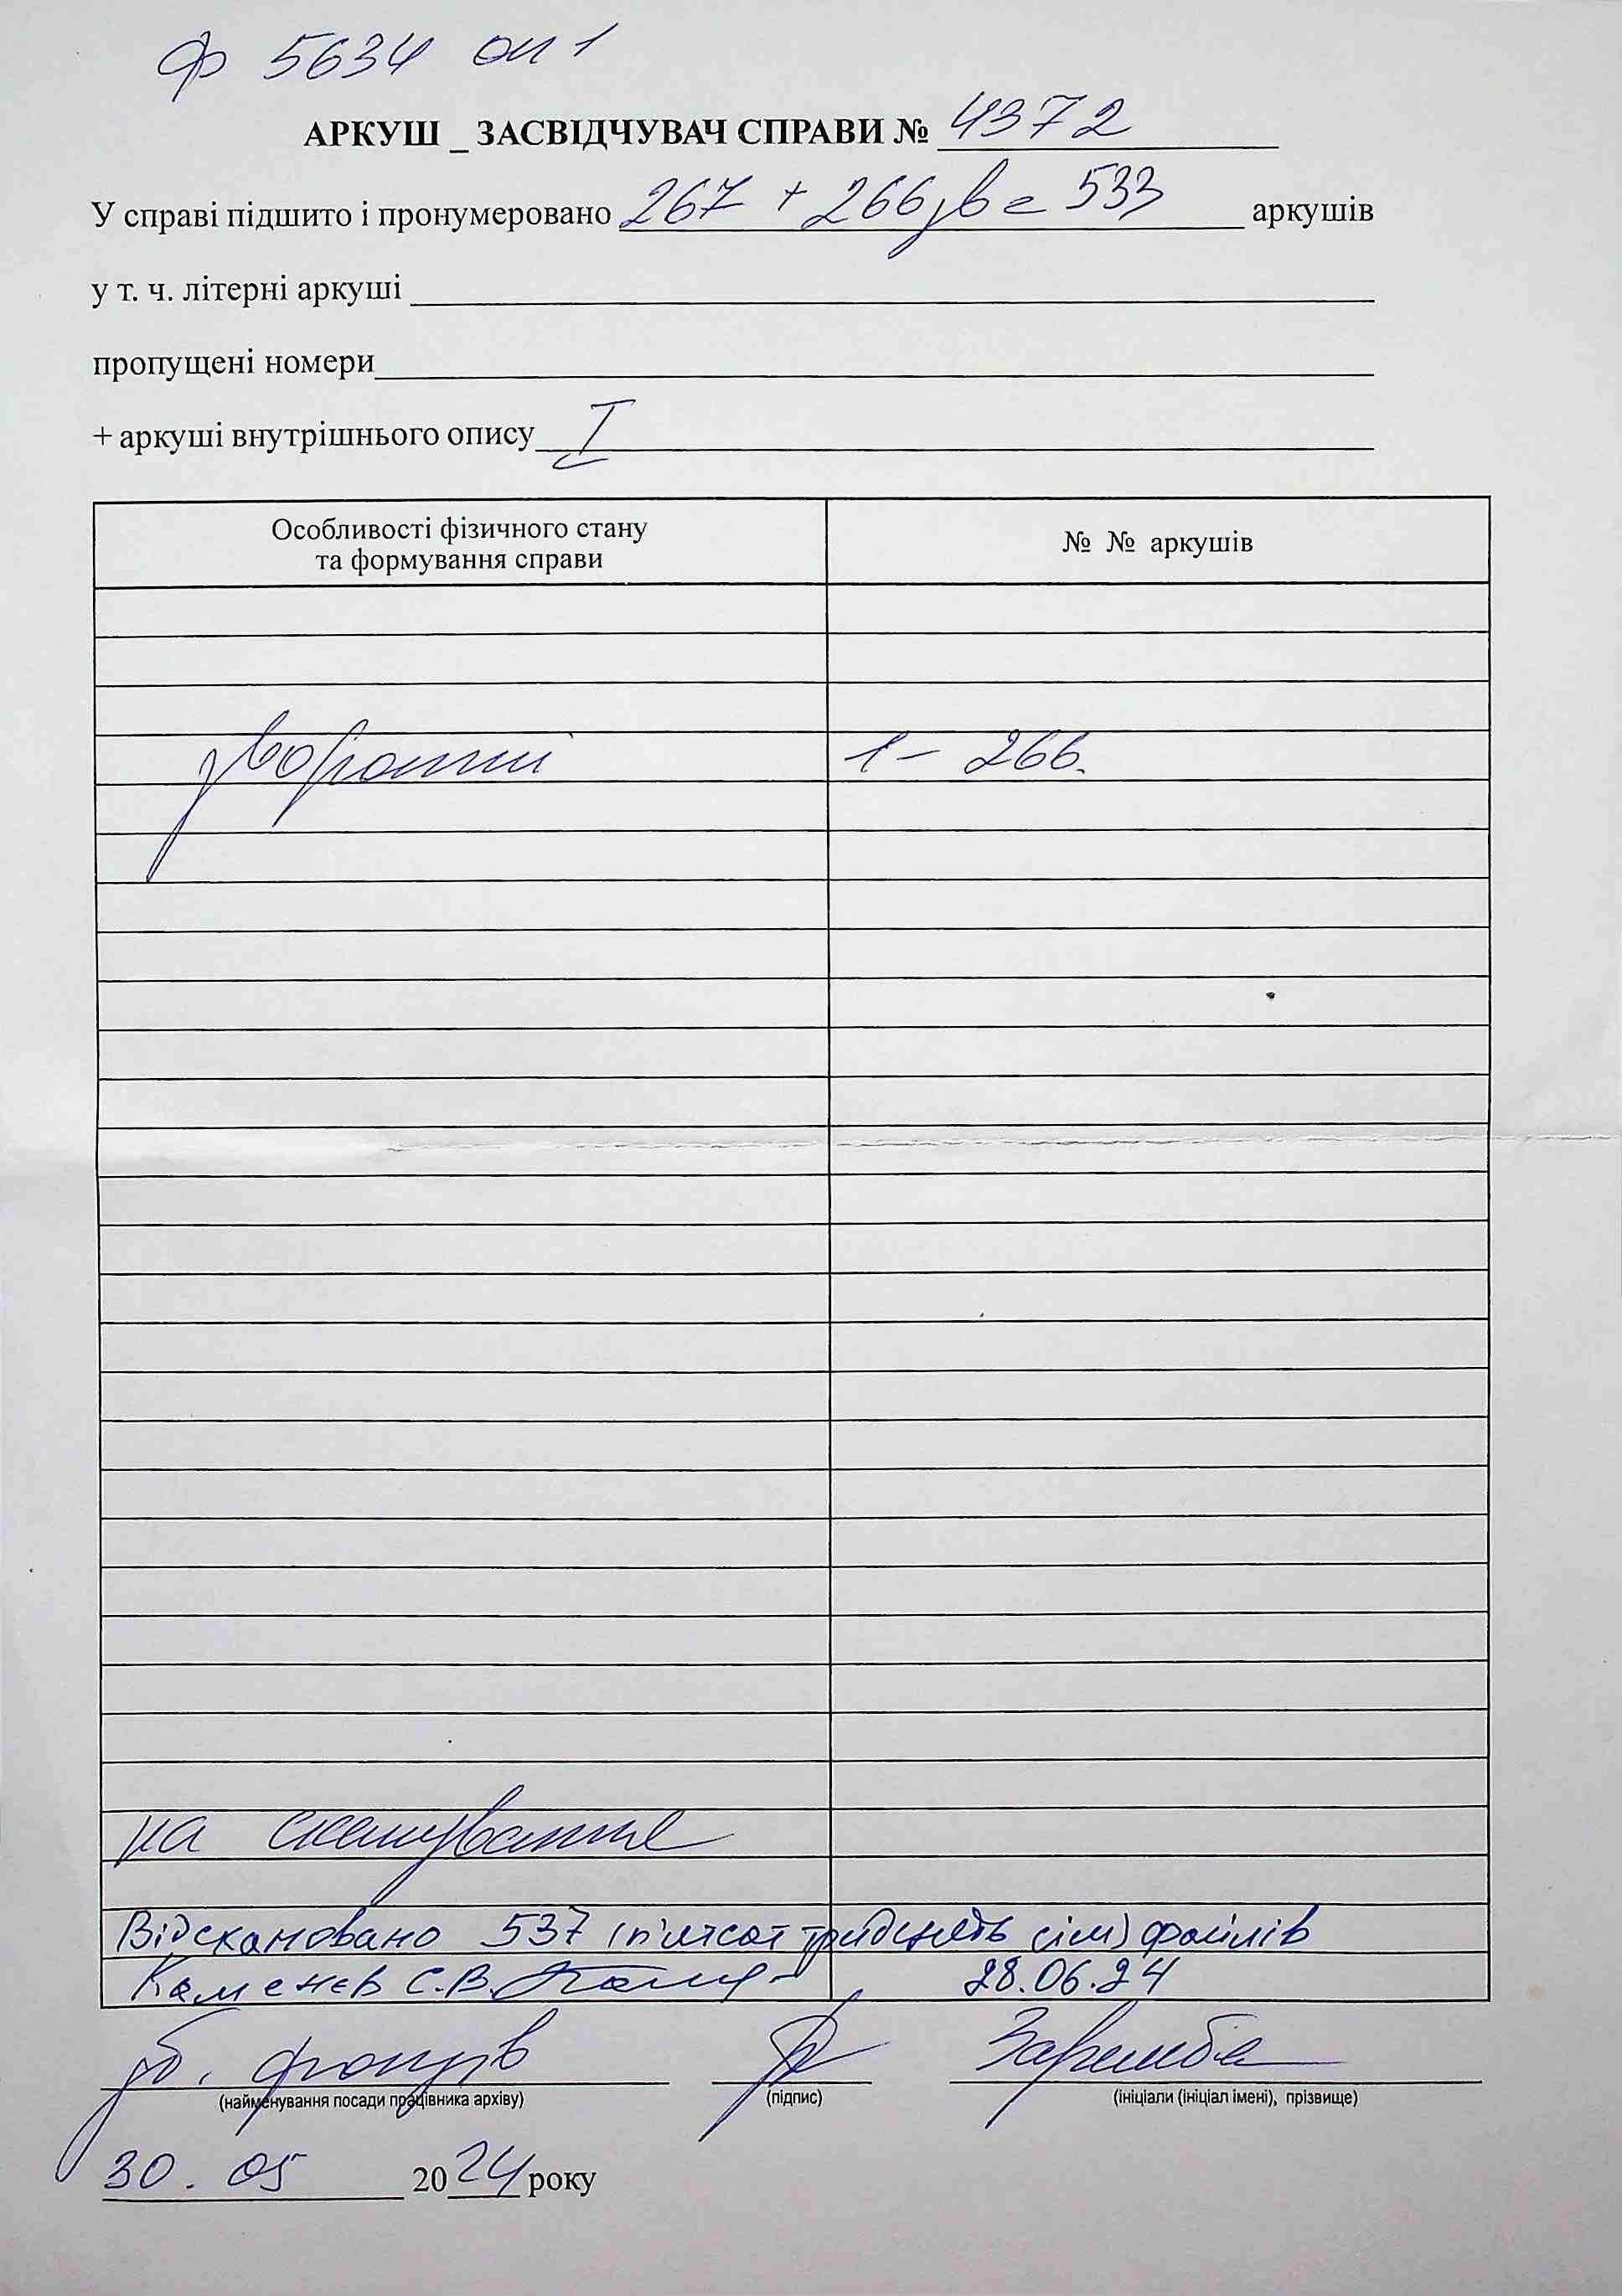 Ф 5634 оп 1
АРКУШ _ ЗАСВІДЧУВАЧ СПРАВИ № 4372
У справі підшито і пронумеровано 267 + 266 зв = 533 аркушів
у т. ч. літерні аркуші
пропущені номери
+ аркуші внутрішнього опису I
Особливості фізичного стану
та формування справи
№ № аркушів
зворотний 1 – 266.
на сканування
Відскановано 537 (п'ятсот тридцять сім) файлів
Каменєв С.В. 28.06.24
зб. фондів Заремба
(найменування посади працівника архіву) (підпис) (ініціали (ініціал імені), прізвище)
30. 05 2024 року